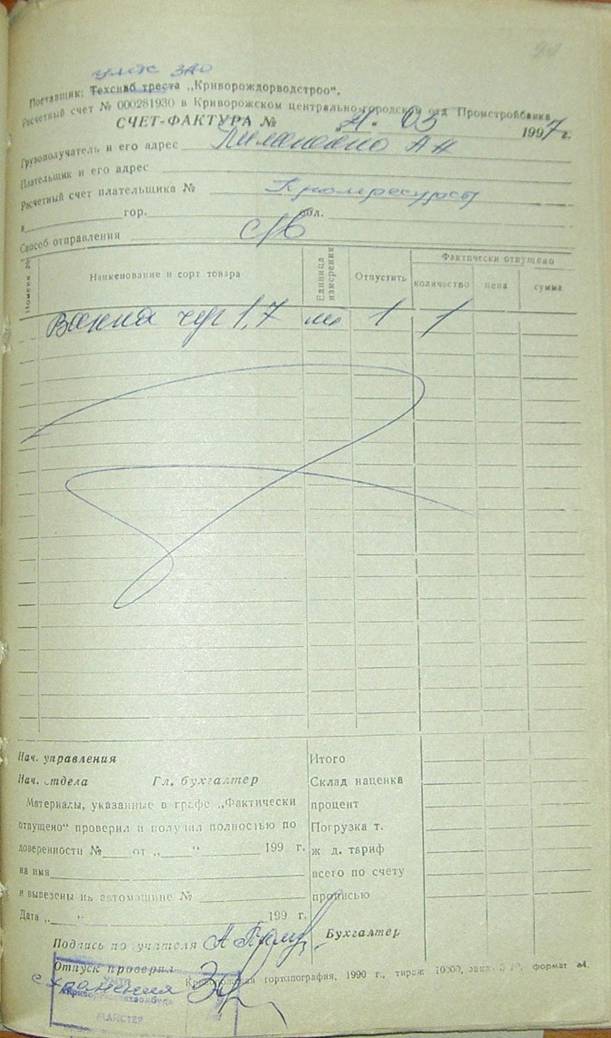 умтк ЗАО
Поставщик: Техснаб треста „Криворождорводстроо".
Расчетный счет № 000281930 в Криворожском центрально-городском отд Промстройбанка
СЧЕТ-ФАКТУРА № 03 1997 г.
Грузополучатель и его адрес
Плательщик и его адрес
Расчетный счет плательщика №
в гор. обл.
Способ отправления с/в
Номенк. №
Наименование и сорт товара
Единица измерения
Отпустить
Фактически отпущено
количество
цена
сумма
Ванна чуг 1,7 шт 1 1
Нач. управления
Нач. отдела Гл. бухгалтер
Материалы, указанные в графе „Фактически
отпущено" проверил и получил полностью по
доверенности № от „ " 199 г.
на имя
и вывезены на автомашине №
Дата „ " 199 г.
Итого
Склад наценка
процент
Погрузка т.
ж д. тариф
всего по счету
прописью
Подпись получателя
Бухгалтер
Отпуск проверил
Криворожская гортопография, 1990 г., тираж 10000, формат а4.
МАЙСТЕР